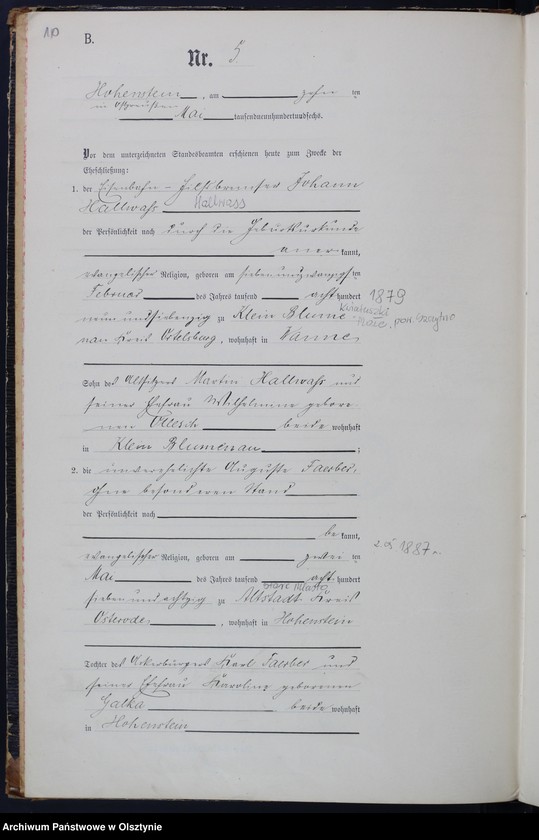 10
B.
Nr. 5
Hohenstein, am zehn ten
in Ostpreußen
Mai tausendneunhundertundsechs.
Vor dem unterzeichneten Standesbeamten erschienen heute zum Zwecke der
Eheschließung:
1. der Eisenbahn-Hilfsbremser Johann
Hallwass Hallwass
der Persönlichkeit nach durch die Geburtsurkunde
aner kannt,
evangelischer Religion, geboren am siebenundzwanzigsten
Februar des Jahres tausend acht hundert 1879
neun und siebenzig zu Klein Blume-
nau Kreis Ortelsburg, wohnhaft in Wanne,
pow. Szczytno
Sohn des Altsitzers Martin Hallwass und
seiner Ehefrau Wilhelmine gebore-
nen Ollesch beide wohnhaft
in Klein Blumenau ;
2. die unverehelichte Auguste Faerber,
ohne besonderen Stand
der Persönlichkeit nach
be kannt,
evangelischer Religion, geboren am zwei ten
Mai des Jahres tausend acht hundert 1887 r.
Stare Miasto
sieben und achtzig zu Altstadt Kreis
Osterode, wohnhaft in Hohenstein
Tochter des Ackerbürgers Karl Faerber und
seiner Ehefrau Karoline geborenen
Galka beide wohnhaft
in Hohenstein
Archiwum Państwowe w Olsztynie